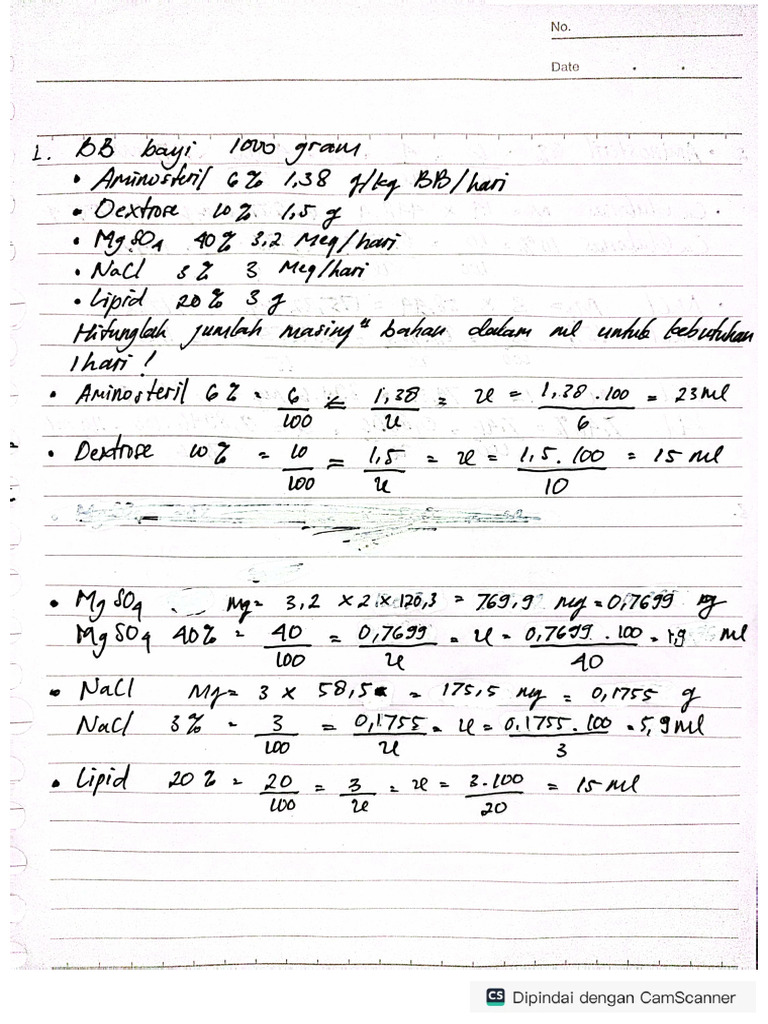 No.
Date
1. BB bayi 1000 gram
• Aminosteril 6% 1,38 g/kg BB/hari
• Dextrose 10% 1,5 g
• MgSO4 40% 3,2 Meq/hari
• NaCl 3% 3 Meq/hari
• Lipid 20% 3 g
Hitunglah jumlah masing" bahan dalam ml untuk kebutuhan
1 hari !
• Aminosteril 6% = 6/100 = 1,38/x = x = 1,38 . 100/6 = 23 ml
• Dextrose 10% = 10/100 = 1,5/x = x = 1,5 . 100/10 = 15 ml
• MgSO4 mg = 3,2 x 2 x 120,3 = 769,9 mg = 0,7699 g
MgSO4 40% = 40/100 = 0,7699/x = x = 0,7699 . 100/40 = 1,9 ml
• NaCl Mg = 3 x 58,5 = 175,5 mg = 0,1755 g
NaCl 3% = 3/100 = 0,1755/x = x = 0,1755 . 100/3 = 5,9 ml
• Lipid 20% = 20/100 = 3/x = x = 3 . 100/20 = 15 ml
CS Dipindai dengan CamScanner